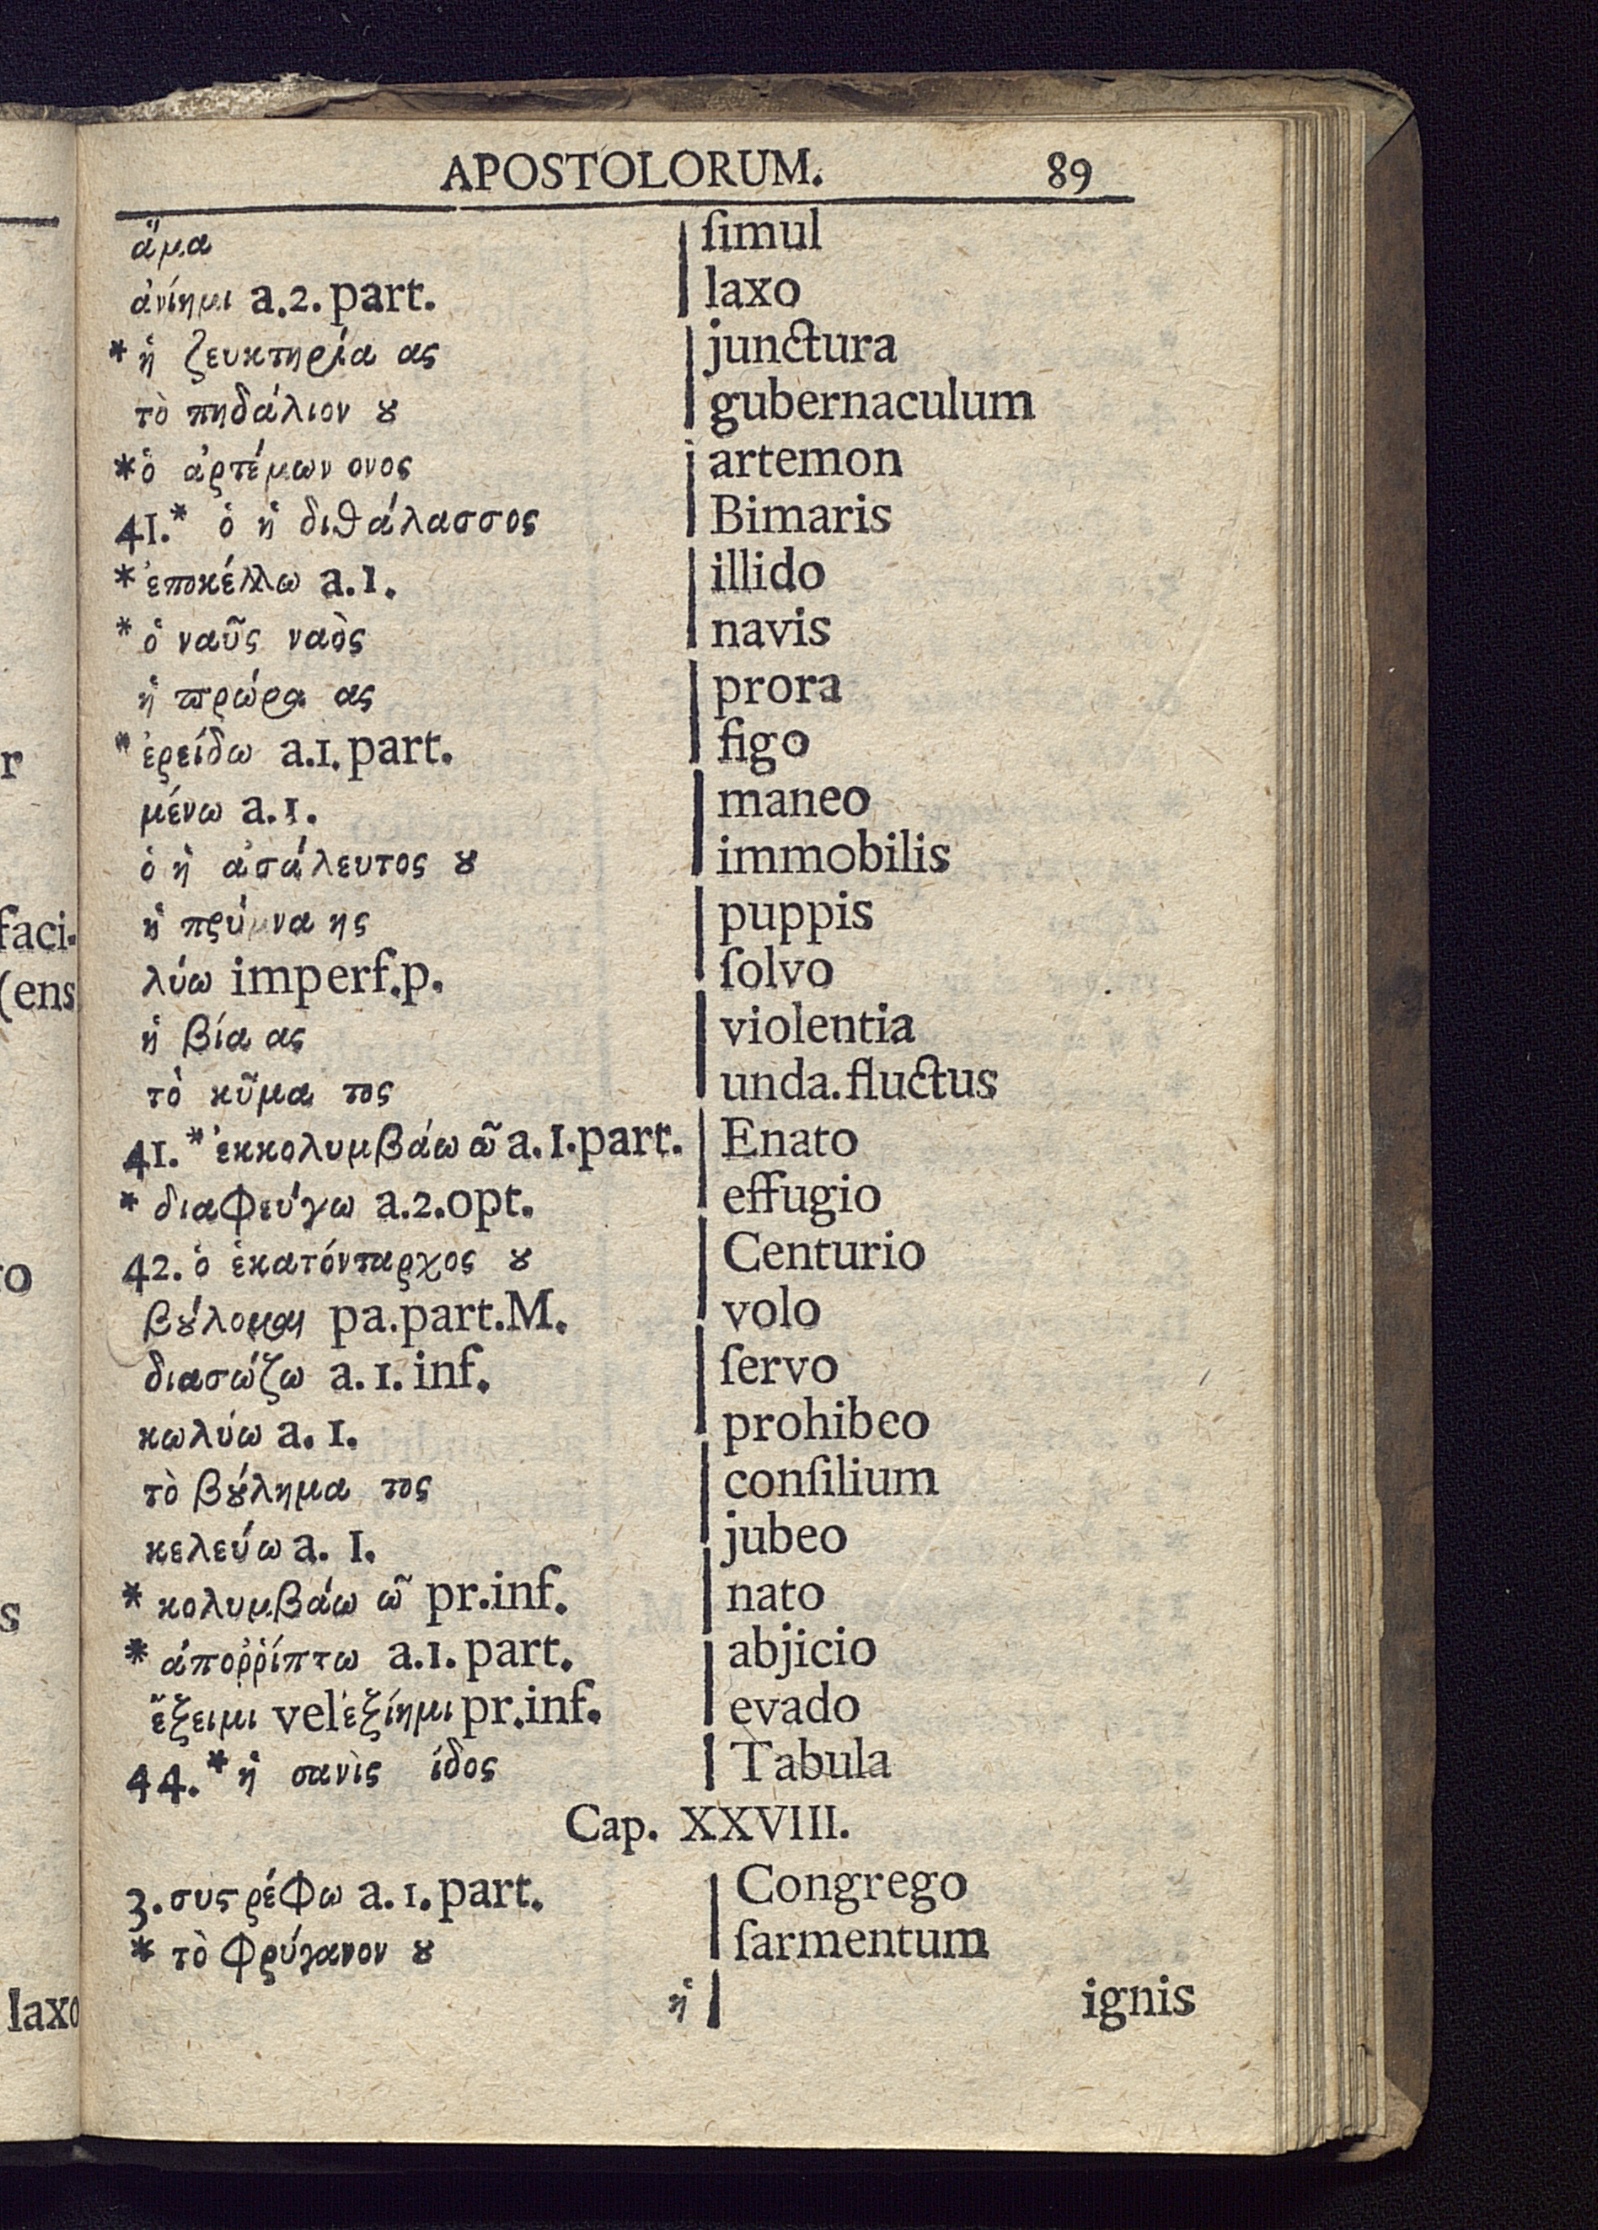 APOSTOLORUM. 89
ἅμα | ſimul
ἀνίημι a.2.part. | laxo
* ἡ ζευκτηρία ας | junctura
τὸ πηδάλιον ȣ | gubernaculum
*ὁ ἀρτέμων ονος | artemon
41.* ὁ ἡ διθάλασσος | Bimaris
*ἐποκέλλω a.1. | illido
*ὁ ναῦς ναὸς | navis
ἡ πρώρα ας | prora
*ἐρείδω a.1.part. | figo
μένω a.1. | maneo
ὁ ἡ ἀσάλευτος ȣ | immobilis
ἡ πρύμνα ης | puppis
λύω imperf.p. | ſolvo
ἡ βία ας | violentia
τὸ κῦμα τος | unda.fluctus
41.*ἐκκολυμβάω ῶ a.1.part. | Enato
* διαφεύγω a.2.opt. | effugio
42. ὁ ἑκατόνταρχος ȣ | Centurio
βȣ́λομαι pa.part.M. | volo
διασώζω a.1.inf. | ſervo
κωλύω a. 1. | prohibeo
τὸ βȣ́λημα τος | conſilium
κελεύω a. 1. | jubeo
* κολυμβάω ῶ pr.inf. | nato
* ἀποῤῥίπτω a.1.part. | abjicio
ἔξειμι vel ἐξίημι pr.inf. | evado
44.*ἡ σανὶς ίδος | Tabula
Cap. XXVIII.
3.συϛρέφω a.1.part. | Congrego
* τὸ φρύγανον ȣ | ſarmentum
ἡ | ignis
r
faci.
(ens
to
s
laxo